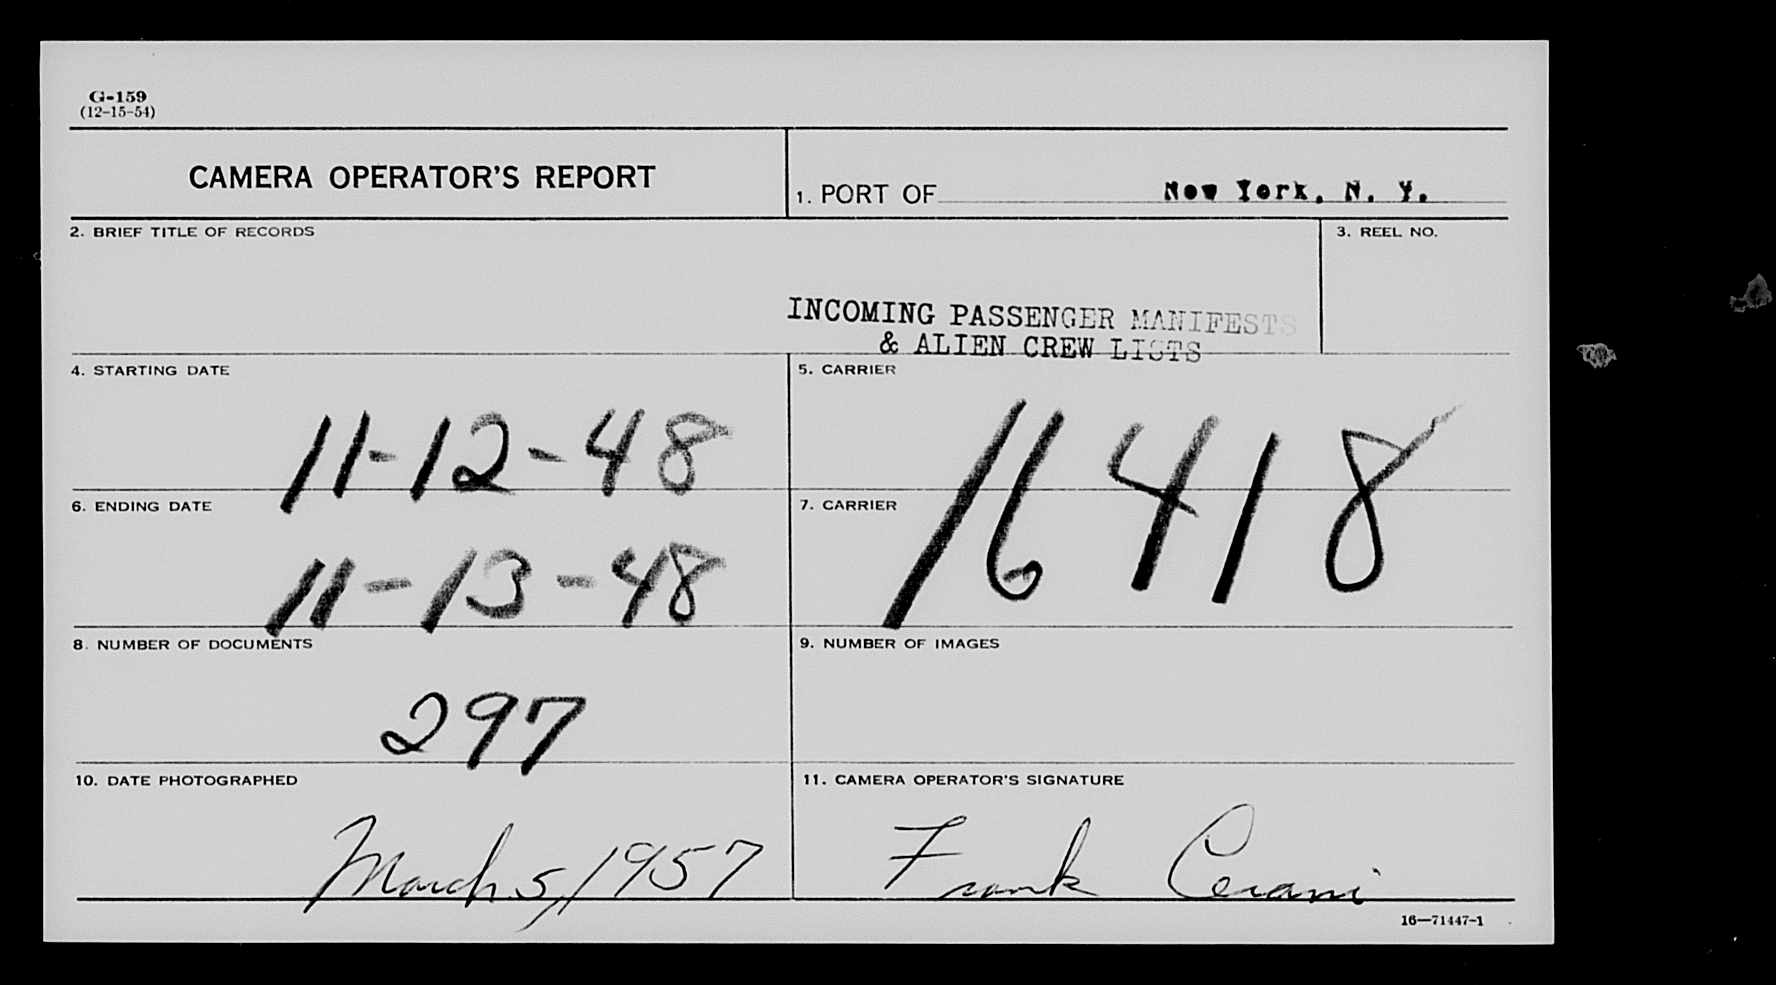 G-159
(12-15-54)
CAMERA OPERATOR'S REPORT
1. PORT OF New York, N. Y.
2. BRIEF TITLE OF RECORDS
3. REEL NO.
INCOMING PASSENGER MANIFESTS
& ALIEN CREW LISTS
4. STARTING DATE
5. CARRIER
11-12-48
6. ENDING DATE
7. CARRIER
16418
11-13-48
8. NUMBER OF DOCUMENTS
9. NUMBER OF IMAGES
297
10. DATE PHOTOGRAPHED
11. CAMERA OPERATOR'S SIGNATURE
March 5, 1957
Frank Cerami
16—71447-1